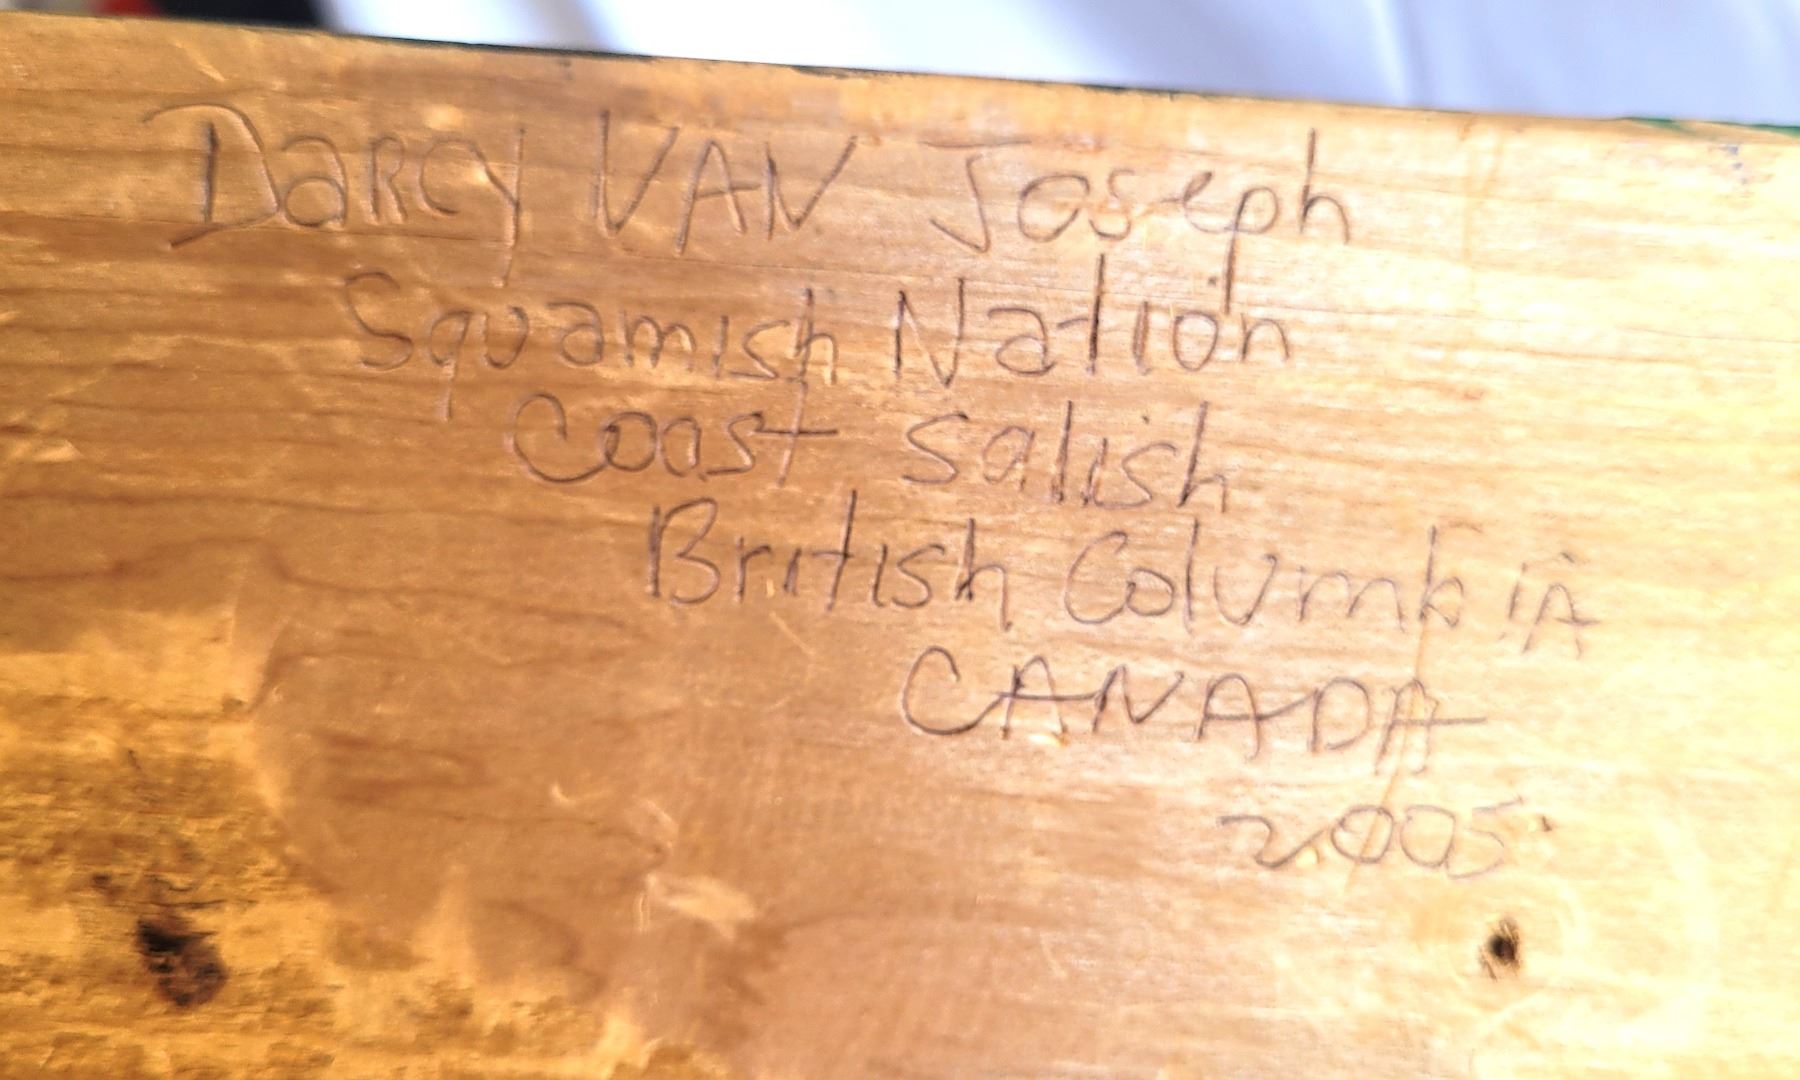 DaRCy VAN Joseph
Squamish Nation
Coast Salish
British ColumbiA
CANADA
2005